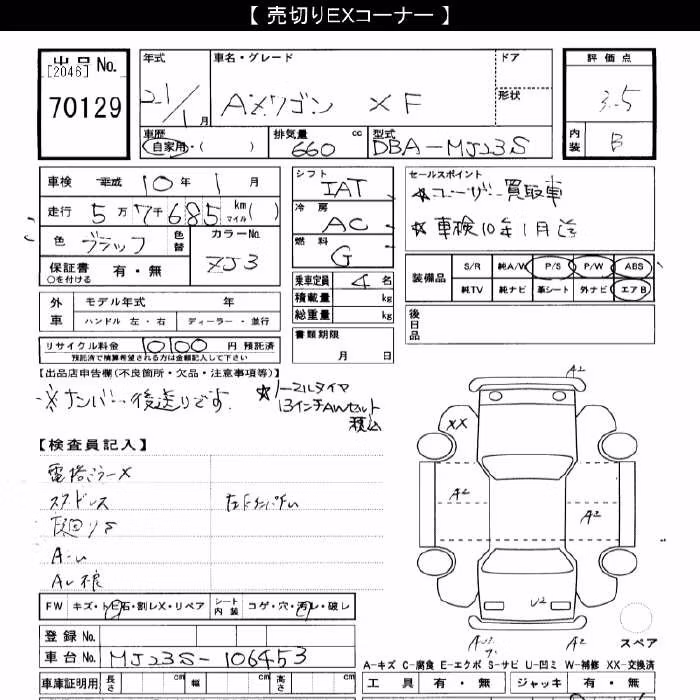 【 売切りEXコーナー 】
出品 No.
[2046]
70129
年式
21/1月
車名・グレード
AZワゴン XF
ドア
形状
評価点
3.5
内装
B
車歴
自家用・( )
排気量 cc
660
型式
DBA-MJ23S
車検 平成 10年 1月
走行 5万7千685 km マイル( )
色 ブラック
色替
カラーNo.
ZJ3
保証書 有・無
○を付ける
シフト
IAT
冷房
AC
燃料
G
乗車定員 4名
積載量 kg
総重量 kg
書類期限
月 日
セールスポイント
☆ユーザー買取車
☆車検10年1月迄
装備品
S/R 純A/W P/S P/W ABS
純TV 純ナビ 革シート 外ナビ エアB
後日品
外車
モデル年式 年
ハンドル 左・右 ディーラー・並行
リサイクル料金 10100 円 預託済
預託済で精算希望される方は金額記入して下さい
【出品店申告欄(不良箇所・欠品・注意事項等)】
※ナンバー後送りです.
☆ノーマルタイヤ
13インチAWセット
積込
【検査員記入】
電格ミラーX
スタッドレス
A-ム
FW キズ・トビ石・割レX・リペア
シート内装 コゲ・穴・汚レ・破レ
登録 No.
車台 No. MJ23S-106453
車庫証明用 長さ cm 幅 cm 高さ cm
A2
XX
A2
A2
U2
A2
スペア
A-キズ C-腐食 E-エクボ S-サビ U-凹ミ W-補修 XX-交換済
工具 有・無 ジャッキ 有・無